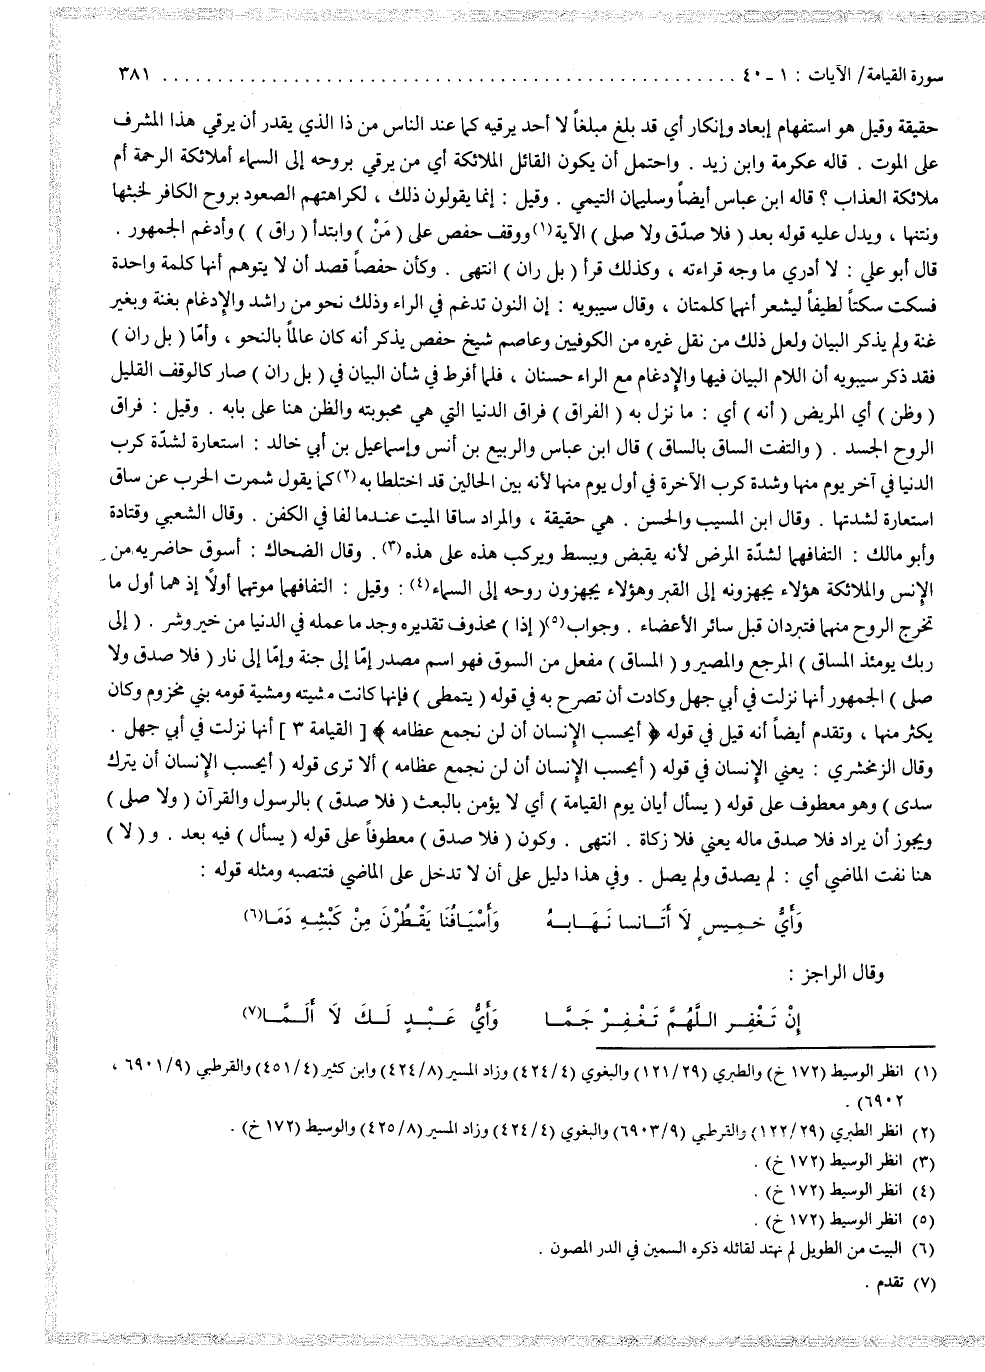 سورة القيامة/ الآيات : ١ - ٤٠ ................................................ ٣٨١
حقيقة وقيل هو استفهام إبعاد وإنكار أي قد بلغ مبلغاً لا أحد يرقيه كما عند الناس من ذا الذي يقدر أن يرقي هذا المشرف
على الموت . قاله عكرمة وابن زيد . واحتمل أن يكون القائل الملائكة أي من يرقي بروحه إلى السماء أملائكة الرحمة أم
ملائكة العذاب ؟ قاله ابن عباس أيضاً وسليمان التيمي . وقيل : إنما يقولون ذلك ، لكراهتهم الصعود بروح الكافر لخبثها
ونتنها ، ويدل عليه قوله بعد ( فلا صدّق ولا صلى ) الآية(١) ووقف حفص على ( مَنْ ) وابتدأ ( راق ) وأدغم الجمهور .
قال أبو علي : لا أدري ما وجه قراءته ، وكذلك قرأ ( بل ران ) انتهى . وكأن حفصاً قصد أن لا يتوهم أنها كلمة واحدة
فسكت سكتاً لطيفاً ليشعر أنهما كلمتان ، وقال سيبويه : إن النون تدغم في الراء وذلك نحو من راشد والإدغام بغنة وبغير
غنة ولم يذكر البيان ولعل ذلك من نقل غيره من الكوفيين وعاصم شيخ حفص يذكر أنه كان عالماً بالنحو ، وأمّا ( بل ران )
فقد ذكر سيبويه أن اللام البيان فيها والإدغام مع الراء حسنان ، فلما أفرط في شأن البيان في ( بل ران ) صار كالوقف القليل
( وظن ) أي المريض ( أنه ) أي : ما نزل به ( الفراق ) فراق الدنيا التي هي محبوبته والظن هنا على بابه . وقيل : فراق
الروح الجسد . ( والتفت الساق بالساق ) قال ابن عباس والربيع بن أنس وإسماعيل بن أبي خالد : استعارة لشدّة كرب
الدنيا في آخر يوم منها وشدة كرب الآخرة في أول يوم منها لأنه بين الحالين قد اختلطا به(٢) كما يقول شمرت الحرب عن ساق
استعارة لشدتها . وقال ابن المسيب والحسن . هي حقيقة ، والمراد ساقا الميت عندما لفا في الكفن . وقال الشعبي وقتادة
وأبو مالك : التفافهما لشدّة المرض لأنه يقبض ويبسط ويركب هذه على هذه(٣) . وقال الضحاك : أسوق حاضريه من
الإنس والملائكة هؤلاء يجهزونه إلى القبر وهؤلاء يجهزون روحه إلى السماء(٤) : وقيل : التفافهما موتهما أولاً إذ هما أول ما
تخرج الروح منهما فتبردان قبل سائر الأعضاء . وجواب(٥) ( إذا ) محذوف تقديره وجد ما عمله في الدنيا من خير وشر . ( إلى
ربك يومئذ المساق ) المرجع والمصير و ( المساق ) مفعل من السوق فهو اسم مصدر إمّا إلى جنة وإمّا إلى نار ( فلا صدق ولا
صلى ) الجمهور أنها نزلت في أبي جهل وكادت أن تصرح به في قوله ( يتمطى ) فإنها كانت مشيته ومشية قومه بني مخزوم وكان
يكثر منها ، وتقدم أيضاً أنه قيل في قوله ﴿ أيحسب الإنسان أن لن نجمع عظامه ﴾ [ القيامة ٣ ] أنها نزلت في أبي جهل .
وقال الزمخشري : يعني الإنسان في قوله ( أيحسب الإنسان أن لن نجمع عظامه ) ألا ترى قوله ( أيحسب الإنسان أن يترك
سدى ) وهو معطوف على قوله ( يسأل أيان يوم القيامة ) أي لا يؤمن بالبعث ( فلا صدق ) بالرسول والقرآن ( ولا صلى )
ويجوز أن يراد فلا صدق ماله يعني فلا زكاة . انتهى . وكون ( فلا صدق ) معطوفاً على قوله ( يسأل ) فيه بعد . و ( لا )
هنا نفت الماضي أي : لم يصدق ولم يصل . وفي هذا دليل على أن لا تدخل على الماضي فتنصبه ومثله قوله :
وَأَيُّ خَمِيسٍ لَا أَتَانَا نَهَابَهُ وَأَسْيَافُنَا يَقْطُرْنَ مِنْ كَبْشِهِ دَمَا(٦)
وقال الراجز :
إِنْ تَغْفِرِ اللَّهُمَّ تَغْفِرْ جَمَّا وَأَيُّ عَبْدٍ لَكَ لَا أَلَمَّا(٧)
(١) انظر الوسيط (١٧٢ خ) والطبري (١٢١/٢٩) والبغوي (٤٢٤/٤) وزاد المسير (٤٢٤/٨) وابن كثير (٤٥١/٤) والقرطبي (٦٩٠١/٩ ،
٦٩٠٢) .
(٢) انظر الطبري (١٢٢/٢٩) والقرطبي (٦٩٠٣/٩) والبغوي (٤٢٤/٤) وزاد المسير (٤٢٥/٨) والوسيط (١٧٢ خ) .
(٣) انظر الوسيط (١٧٢ خ) .
(٤) انظر الوسيط (١٧٢ خ) .
(٥) انظر الوسيط (١٧٢ خ) .
(٦) البيت من الطويل لم نهتد لقائله ذكره السمين في الدر المصون .
(٧) تقدم .